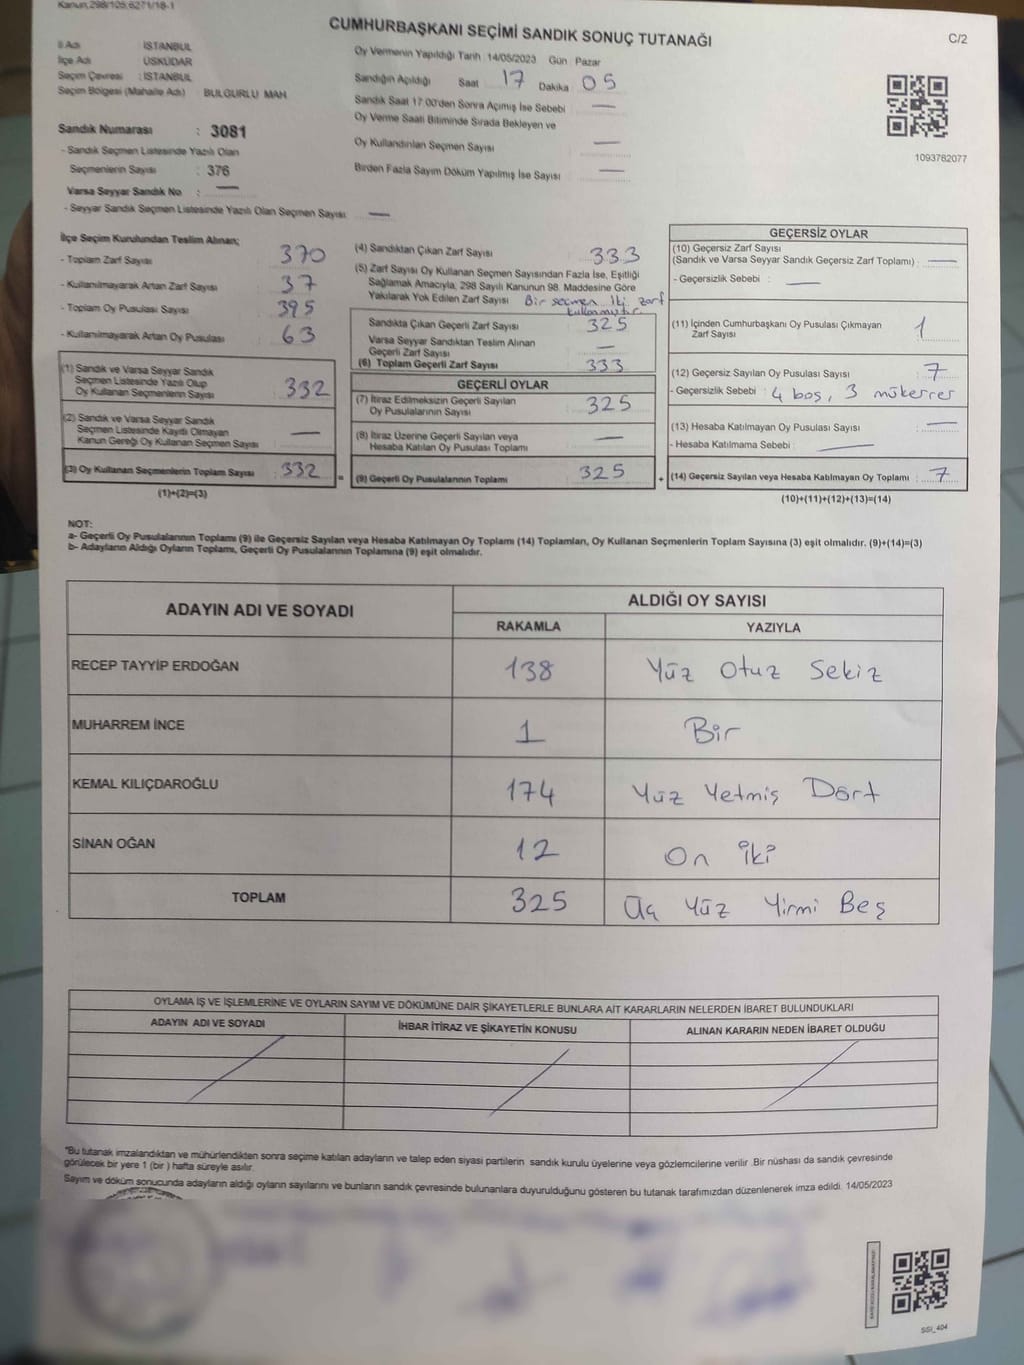 Kanun;298/105;6271/18-1
CUMHURBAŞKANI SEÇİMİ SANDIK SONUÇ TUTANAĞI
C/2
İl Adı İSTANBUL
İlçe Adı ÜSKÜDAR
Seçim Çevresi : İSTANBUL
Seçim Bölgesi (Mahalle Adı) : BULGURLU MAH
Sandık Numarası : 3081
- Sandık Seçmen Listesinde Yazılı Olan
Seçmenlerin Sayısı : 376
Varsa Seyyar Sandık No : —
- Seyyar Sandık Seçmen Listesinde Yazılı Olan Seçmen Sayısı: —
Oy Vermenin Yapıldığı Tarih :14/05/2023 Gün : Pazar
Sandığın Açıldığı Saat 17 Dakika 05
Sandık Saat 17:00'den Sonra Açımış İse Sebebi —
Oy Verme Saati Bitiminde Sırada Bekleyen ve
Oy Kullandırılan Seçmen Sayısı —
Birden Fazla Sayım Döküm Yapılmış İse Sayısı —
1093782077
İlçe Seçim Kurulundan Teslim Alınan;
- Toplam Zarf Sayısı 370
- Kullanılmayarak Artan Zarf Sayısı 37
- Toplam Oy Pusulası Sayısı 395
- Kullanılmayarak Artan Oy Pusulası 63
(1) Sandık ve Varsa Seyyar Sandık
Seçmen Listesinde Yazılı Olup
Oy Kullanan Seçmenlerin Sayısı 332
(2) Sandık ve Varsa Seyyar Sandık
Seçmen Listesinde Kayıtlı Olmayan
Kanun Gereği Oy Kullanan Seçmen Sayısı —
(3) Oy Kullanan Seçmenlerin Toplam Sayısı 332 =
(1)+(2)=(3)
(4) Sandıktan Çıkan Zarf Sayısı 333
(5) Zarf Sayısı Oy Kullanan Seçmen Sayısından Fazla İse, Eşitliği
Sağlamak Amacıyla, 298 Sayılı Kanunun 98. Maddesine Göre
Yakılarak Yok Edilen Zarf Sayısı Bir seçmen iki zarf
kullanmıştır.
Sandıkta Çıkan Geçerli Zarf Sayısı 325
Varsa Seyyar Sandıktan Teslim Alınan
Geçerli Zarf Sayısı —
(6) Toplam Geçerli Zarf Sayısı 333
GEÇERLİ OYLAR
(7) İtiraz Edilmeksizin Geçerli Sayılan
Oy Pusulalarının Sayısı 325
(8) İtiraz Üzerine Geçerli Sayılan veya
Hesaba Katılan Oy Pusulası Toplamı —
(9) Geçerli Oy Pusulalarının Toplamı 325 +
GEÇERSİZ OYLAR
(10) Geçersiz Zarf Sayısı
(Sandık ve Varsa Seyyar Sandık Geçersiz Zarf Toplamı) : —
- Geçersizlik Sebebi : —
(11) İçinden Cumhurbaşkanı Oy Pusulası Çıkmayan
Zarf Sayısı 1
(12) Geçersiz Sayılan Oy Pusulası Sayısı 7
- Geçersizlik Sebebi : 4 boş, 3 mükerrer
(13) Hesaba Katılmayan Oy Pusulası Sayısı —
- Hesaba Katılmama Sebebi : —
(14) Geçersiz Sayılan veya Hesaba Katılmayan Oy Toplamı : 7
(10)+(11)+(12)+(13)=(14)
NOT:
a- Geçerli Oy Pusulalarının Toplamı (9) ile Geçersiz Sayılan veya Hesaba Katılmayan Oy Toplamı (14) Toplamları, Oy Kullanan Seçmenlerin Toplam Sayısına (3) eşit olmalıdır. (9)+(14)=(3)
b- Adayların Aldığı Oyların Toplamı, Geçerli Oy Pusulalarının Toplamına (9) eşit olmalıdır.
ADAYIN ADI VE SOYADI ALDIĞI OY SAYISI
RAKAMLA YAZIYLA
RECEP TAYYİP ERDOĞAN 138 Yüz Otuz Sekiz
MUHARREM İNCE 1 Bir
KEMAL KILIÇDAROĞLU 174 Yüz Yetmiş Dört
SİNAN OĞAN 12 On iki
TOPLAM 325 Üç Yüz Yirmi Beş
OYLAMA İŞ VE İŞLEMLERİNE VE OYLARIN SAYIM VE DÖKÜMÜNE DAİR ŞİKAYETLERLE BUNLARA AİT KARARLARIN NELERDEN İBARET BULUNDUKLARI
ADAYIN ADI VE SOYADI İHBAR İTİRAZ VE ŞİKAYETİN KONUSU ALINAN KARARIN NEDEN İBARET OLDUĞU
"Bu tutanak imzalandıktan ve mühürlendikten sonra seçime katılan adayların ve talep eden siyasi partilerin sandık kurulu üyelerine veya gözlemcilerine verilir .Bir nüshası da sandık çevresinde
görülecek bir yere 1 (bir ) hafta süreyle asılır.
Sayım ve döküm sonucunda adayların aldığı oyların sayılarını ve bunların sandık çevresinde bulunanlara duyurulduğunu gösteren bu tutanak tarafımızdan düzenlenerek imza edildi. 14/05/2023
SSI_404